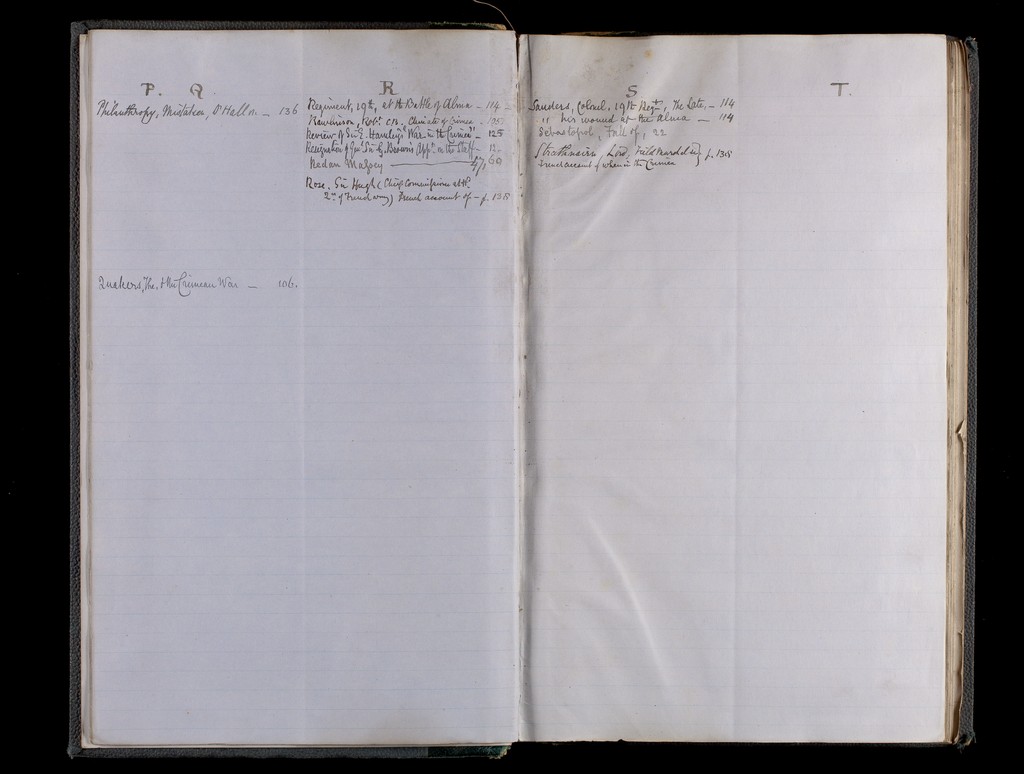 P. Q
Philanthropy, Mistaken, O'Hall n. — 136
Quakers, The, & the Crimean War — 106.
R
Regiment, 19th, at the Battle of Alma — 114
Rawlinson, Robt. CB. Climate of Crimea
Review of Sir E. Hamley's "War in the Crimea" — 125
Resignation of Genl. Sir G. Brown's Appt. on the Staff — 12
Redan Massey — 47, 60
Rose, Sir Hugh (Chief Commissioner at Hd.
Qrs. of French army) French account of — p. 138
S
Sanders, Colonel, 19th Regt., The Late, — 114
" his wound at the Alma — 114
Sebastopol, Fall of, 22
Strathnairn, Lord, Field Marshal p. 138
French account of when in the Crimea
T.